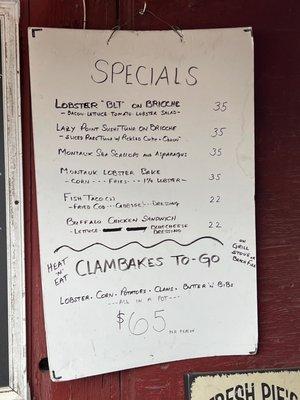 SPECIALS
LOBSTER "BLT" ON BRIOCHE 35
- BACON - LETTUCE - TOMATO - LOBSTER SALAD -
LAZY POINT SUSHI TUNA ON BRIOCHE 35
- SLICED RARE TUNA w/ PICKLED CUKE + ONION -
MONTAUK SEA SCALLOPS AND ASPARAGUS 35
MONTAUK LOBSTER BAKE 35
- CORN - - - FRIES - - - 1¼ LOBSTER -
FISH TACO (2) 22
- FRIED COD - - CABBAGE - - DRESSING
BUFFALO CHICKEN SANDWICH 22
- LETTUCE BLUECHEESE
DRESSING
HEAT
'N'
EAT
CLAMBAKES TO-GO
ON
GRILL
STOVE OR
BEACH FIRE
LOBSTER - CORN - POTATOES - CLAMS - BUTTER 'N' BIBS
- - - ALL IN A POT - - -
$65 PER PERSON
FRESH PIES